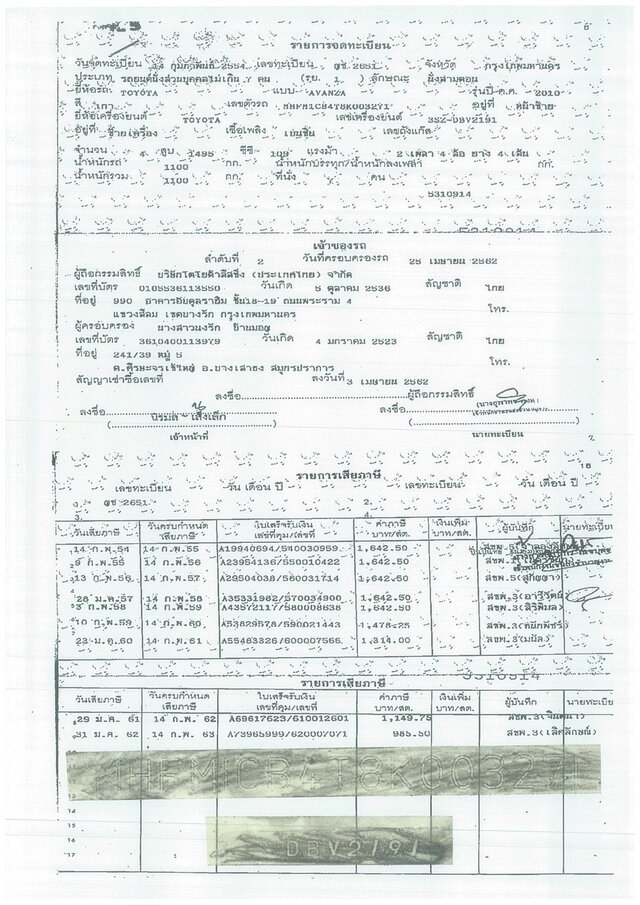 6
รายการจดทะเบียน
วันจดทะเบียน 14 กุมภาพันธ์ 2554 เลขทะเบียน ญช 2651 จังหวัด กรุงเทพมหานคร
ประเภท รถยนต์นั่งส่วนบุคคลไม่เกิน 7 คน (รย. 1 ) ลักษณะ นั่งสามตอน
ยี่ห้อรถ TOYOTA แบบ AVANZA รุ่นปี ค.ศ. 2010
สี เทา เลขตัวรถ MHFM1CB4T8K003271 อยู่ที่ หน้าซ้าย
ยี่ห้อเครื่องยนต์ TOYOTA เลขเครื่องยนต์ 3SZ-DBV2191
อยู่ที่ ซ้ายเครื่อง เชื้อเพลิง เบนซิน เลขถังแก๊ส
จำนวน 4 สูบ 1495 ซีซี 109 แรงม้า 2 เพลา 4 ล้อ ยาง 4 เส้น
น้ำหนักรถ 1100 กก. น้ำหนักบรรทุก/น้ำหนักลงเพลา กก.
น้ำหนักรวม 1100 กก. ที่นั่ง 7 คน
5310914
เจ้าของรถ
ลำดับที่ 2 วันที่ครอบครองรถ 25 เมษายน 2562
ผู้ถือกรรมสิทธิ์ บริษัทโตโยต้าลีสซิ่ง (ประเทศไทย) จำกัด
เลขที่บัตร 0105536113550 วันเกิด 5 ตุลาคม 2536 สัญชาติ ไทย
ที่อยู่ 990 อาคารอับดุลราฮิม ชั้น18-19 ถนนพระราม 4
แขวงสีลม เขตบางรัก กรุงเทพมหานคร โทร.
ผู้ครอบครอง นางสาวนงรัก
เลขที่บัตร 3610400113979 วันเกิด 4 มกราคม 2523 สัญชาติ ไทย
ที่อยู่ 241/39 หมู่ 5 โทร.
ต.ศีรษะจรเข้ใหญ่ อ.บางเสาธง สมุทรปราการ
สัญญาเช่าซื้อเลขที่ ลงวันที่ 3 เมษายน 2562
ลงชื่อ ผู้ถือกรรมสิทธิ์
ลงชื่อ นิรมล เส็งเล็ก ลงชื่อ
เจ้าหน้าที่ นายทะเบียน
18
รายการเสียภาษี
เลขทะเบียน วัน เดือน ปี เลขทะเบียน วัน เดือน ปี
1. ญช 2651 2.
3. 4.
วันเสียภาษี วันครบกำหนดเสียภาษี ใบเสร็จรับเงินเลขที่คุม/เลขที่ ค่าภาษีบาท/สต. เงินเพิ่มบาท/สต. ผู้บันทึก นายทะเบียน
14 ก.พ.54 14 ก.พ.55 A19940694/540030959 1,642.50
9 ก.พ.55 14 ก.พ.56 A23954136/550010422 1,642.50
13 ก.พ.56 14 ก.พ.57 A29504038/560031714 1,642.50
28 ม.ค.57 14 ก.พ.58 A35331982/570034900 1,642.50
3 ก.พ.58 14 ก.พ.59 A43572117/580008638 1,642.50 สขพ.3(สิริพิมล)
10 ก.พ.59 14 ก.พ.60 A53829578/590021443 1,478.25
23 ม.ค.60 14 ก.พ.61 A55483326/600007566 1,314.00 สขพ.3(มนัส)
5310914
รายการเสียภาษี
วันเสียภาษี วันครบกำหนดเสียภาษี ใบเสร็จรับเงินเลขที่คุม/เลขที่ ค่าภาษีบาท/สต. เงินเพิ่มบาท/สต. ผู้บันทึก นายทะเบียน
29 ม.ค. 61 14 ก.พ. 62 A69617623/610012601 1,149.75 สขพ.3(จินตนา)
31 ม.ค. 62 14 ก.พ. 63 A73965999/620007071 985.50 สขพ.3(เลิศลักษณ์)
MHFM1CB4T8K003271
13
14
15
DBV2191
16
17